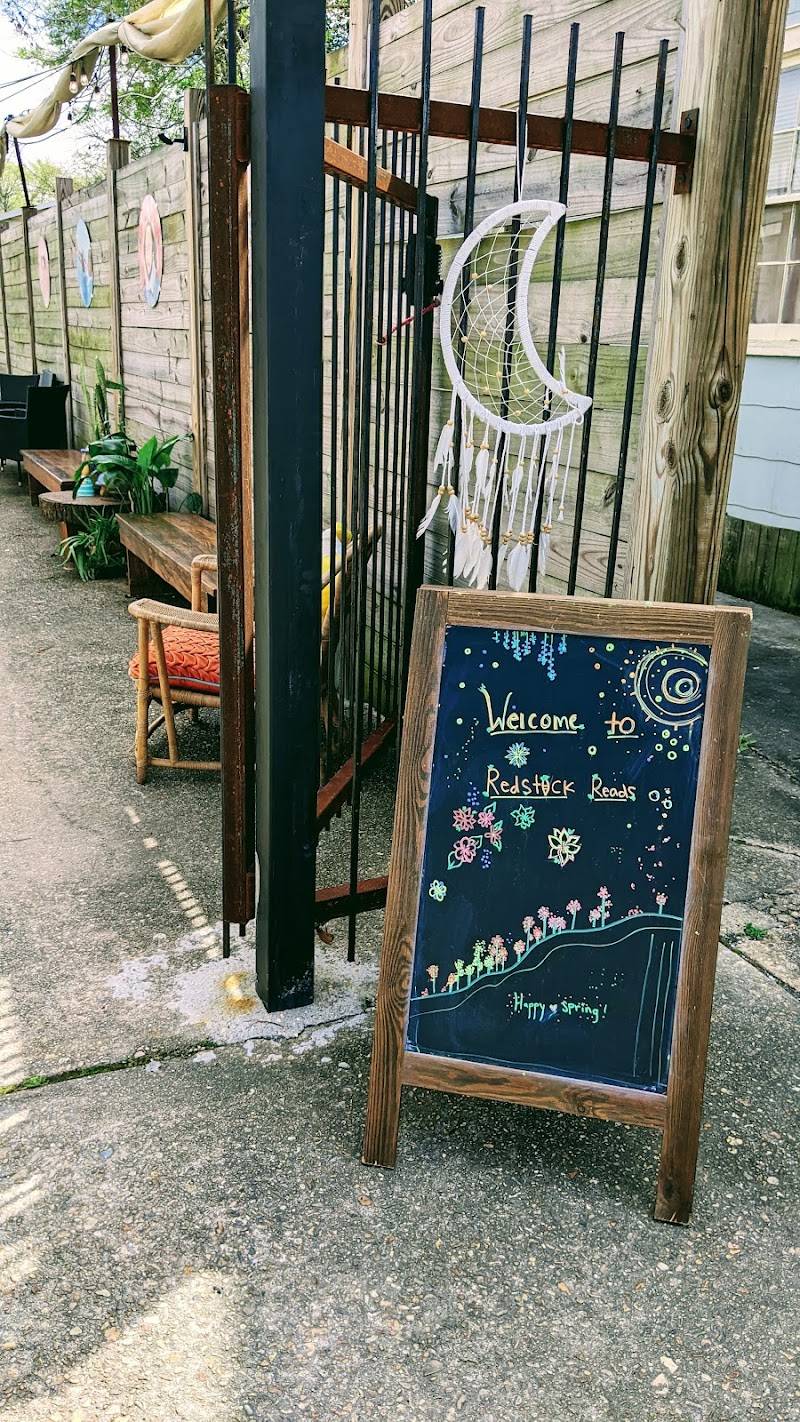 Welcome to
Redstick Reads
Happy spring!